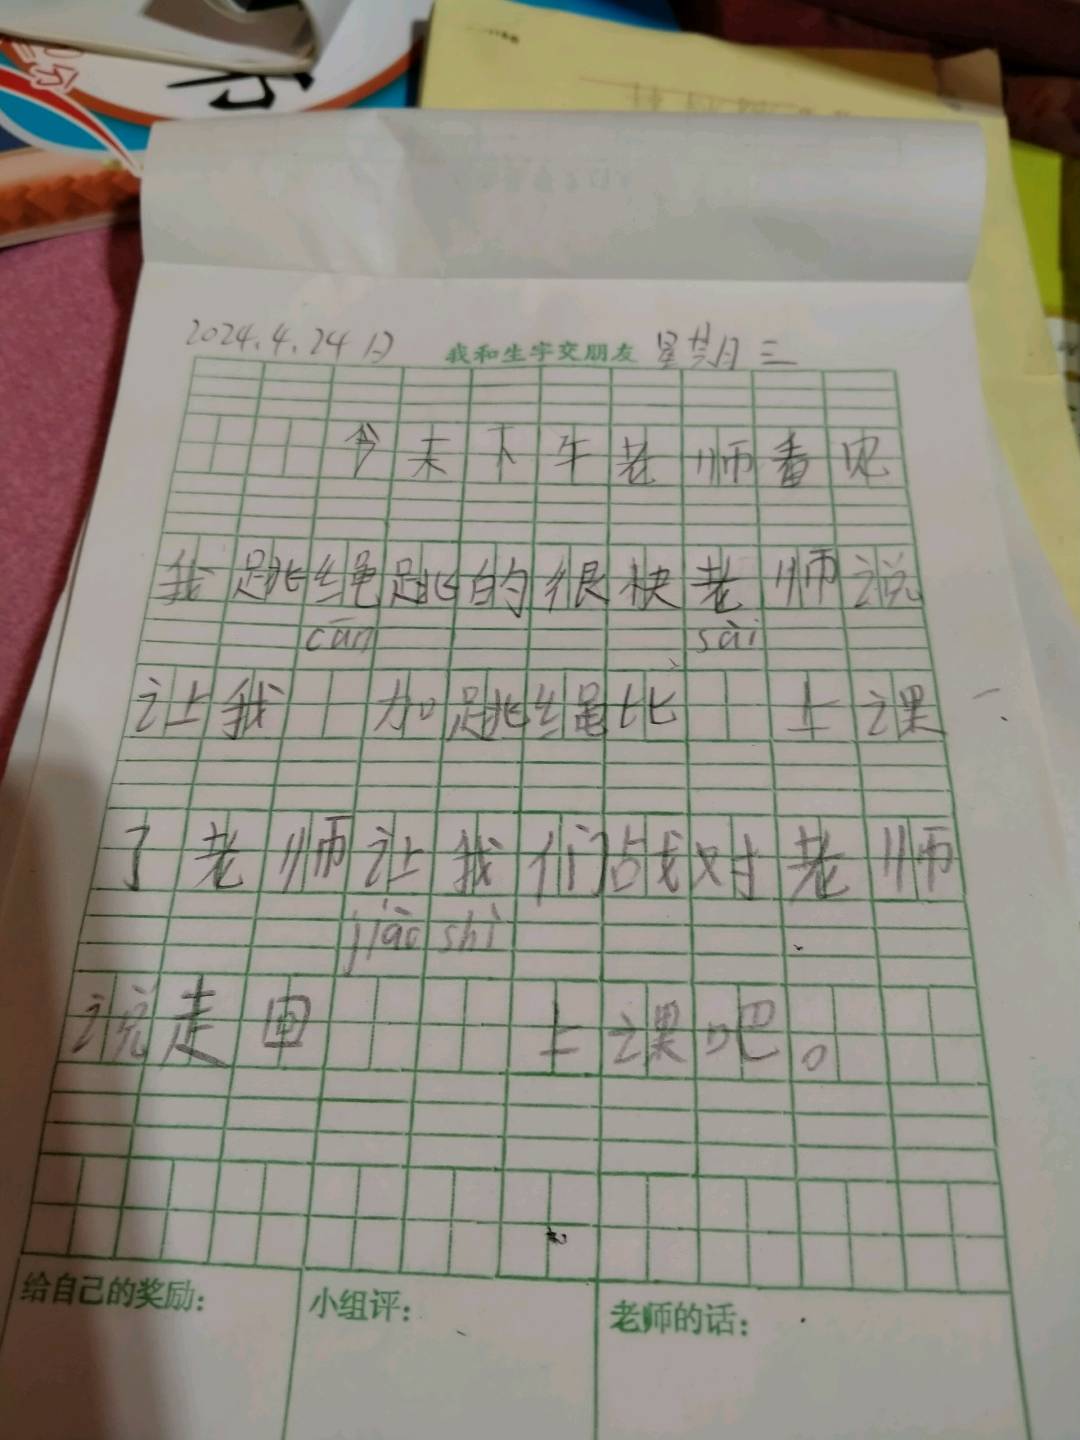 2024.4.24日 我和生字交朋友 星期三
今天下午老师看见
我跳绳跳的很快老师说
cān sài
让我 加跳绳比 上课
了老师让我们战对老师
jiào shì
说走回 上课吧。
给自己的奖励:
小组评:
老师的话: